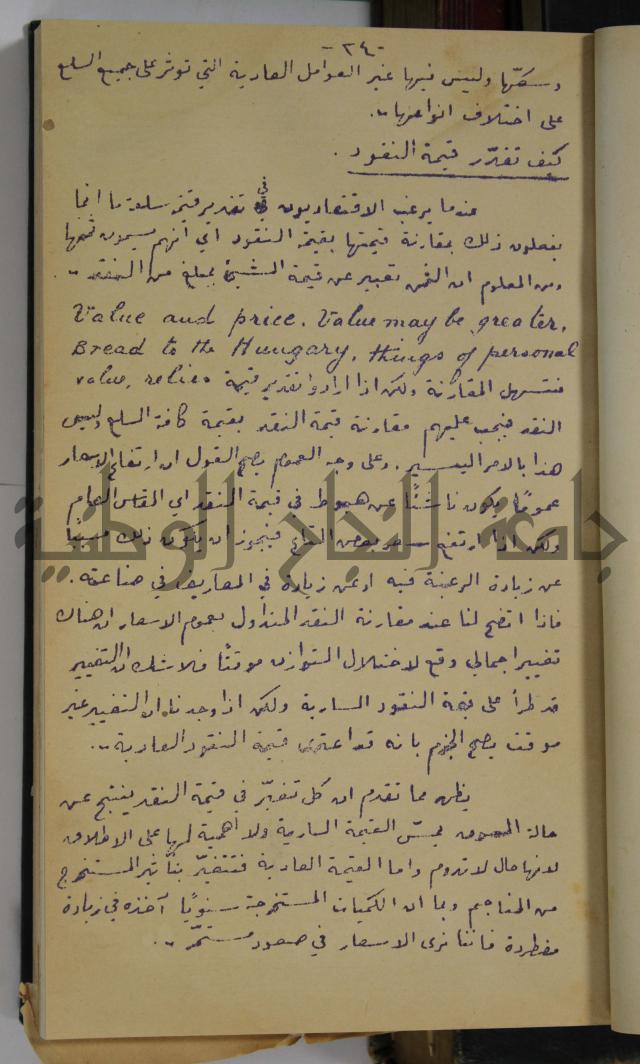 -٢٤-
وسكّها وليس فيها غير العوامل العادية التي تؤثر على جميع السلع
على اختلاف انواعها.
كيف تقدّر قيمة النقود.
عندما يرغب الاقتصاديون في تقدير قيمة سلعة ما انما
يفعلون ذلك بمقارنة قيمتها بقيمة النقود اي انهم يسمون ثمنها
ومن المعلوم ان الثمن تعبير عن قيمة الشيئ بمبلغ من النقد.
Value and price. Value may be greater.
Bread to the Hungary. things of personal
value, relics فتسهل المقارنة ولكن اذا ارادوا تقدير قيمة
النقد فيجب عليهم مقارنة قيمة النقد بقيمة كافة السلع وليس
هذا بالامر اليسير. وعلى وجه العموم يصح القول ان ارتفاع الاسعار
عمومًا يكون ناشئًا عن هبوط في قيمة النقد اي المقاس العام
ولكن اذا ارتفع سعر بعض السلع فيجوز ان يكون ذلك مسببًا
عن زيادة الرغبة فيه او عن زيادة في المصاريف في صناعته.
فاذا اتضح لنا عند مقارنة النقد المتداول بعموم الاسعار ان هناك
تغيير اجمالي وقع لاختلال التوازن موقتًا فلا شك ان التغيير
قد طرأ على قيمة النقود السارية ولكن اذا وجدنا ان التغيير غير
موقت يصح الجزم بانه قد اعترى قيمة النقود العادية.
يظهر مما تقدم ان كل تغيّر في قيمة النقد ينتج عن
حالة السوق يمسّ القيمة السارية ولا اهمية لها على الاطلاق
لانها حال لا تدوم واما القيمة العادية فتتغيّر بتأثير المستخرج
من المناجم وبما ان الكميات المستخرجة سنويًا آخذه في زيادة
مضطردة فاننا نرى الاسعار في صعود مستمّر.
جامعة النجاح الوطنية